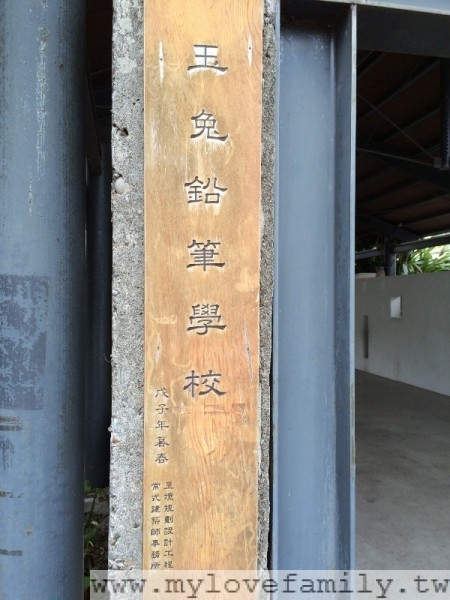 玉兔鉛筆學校
戊子年暮春
呈境規劃設計工程
常式建築師事務所
www.mylovefamily.tw